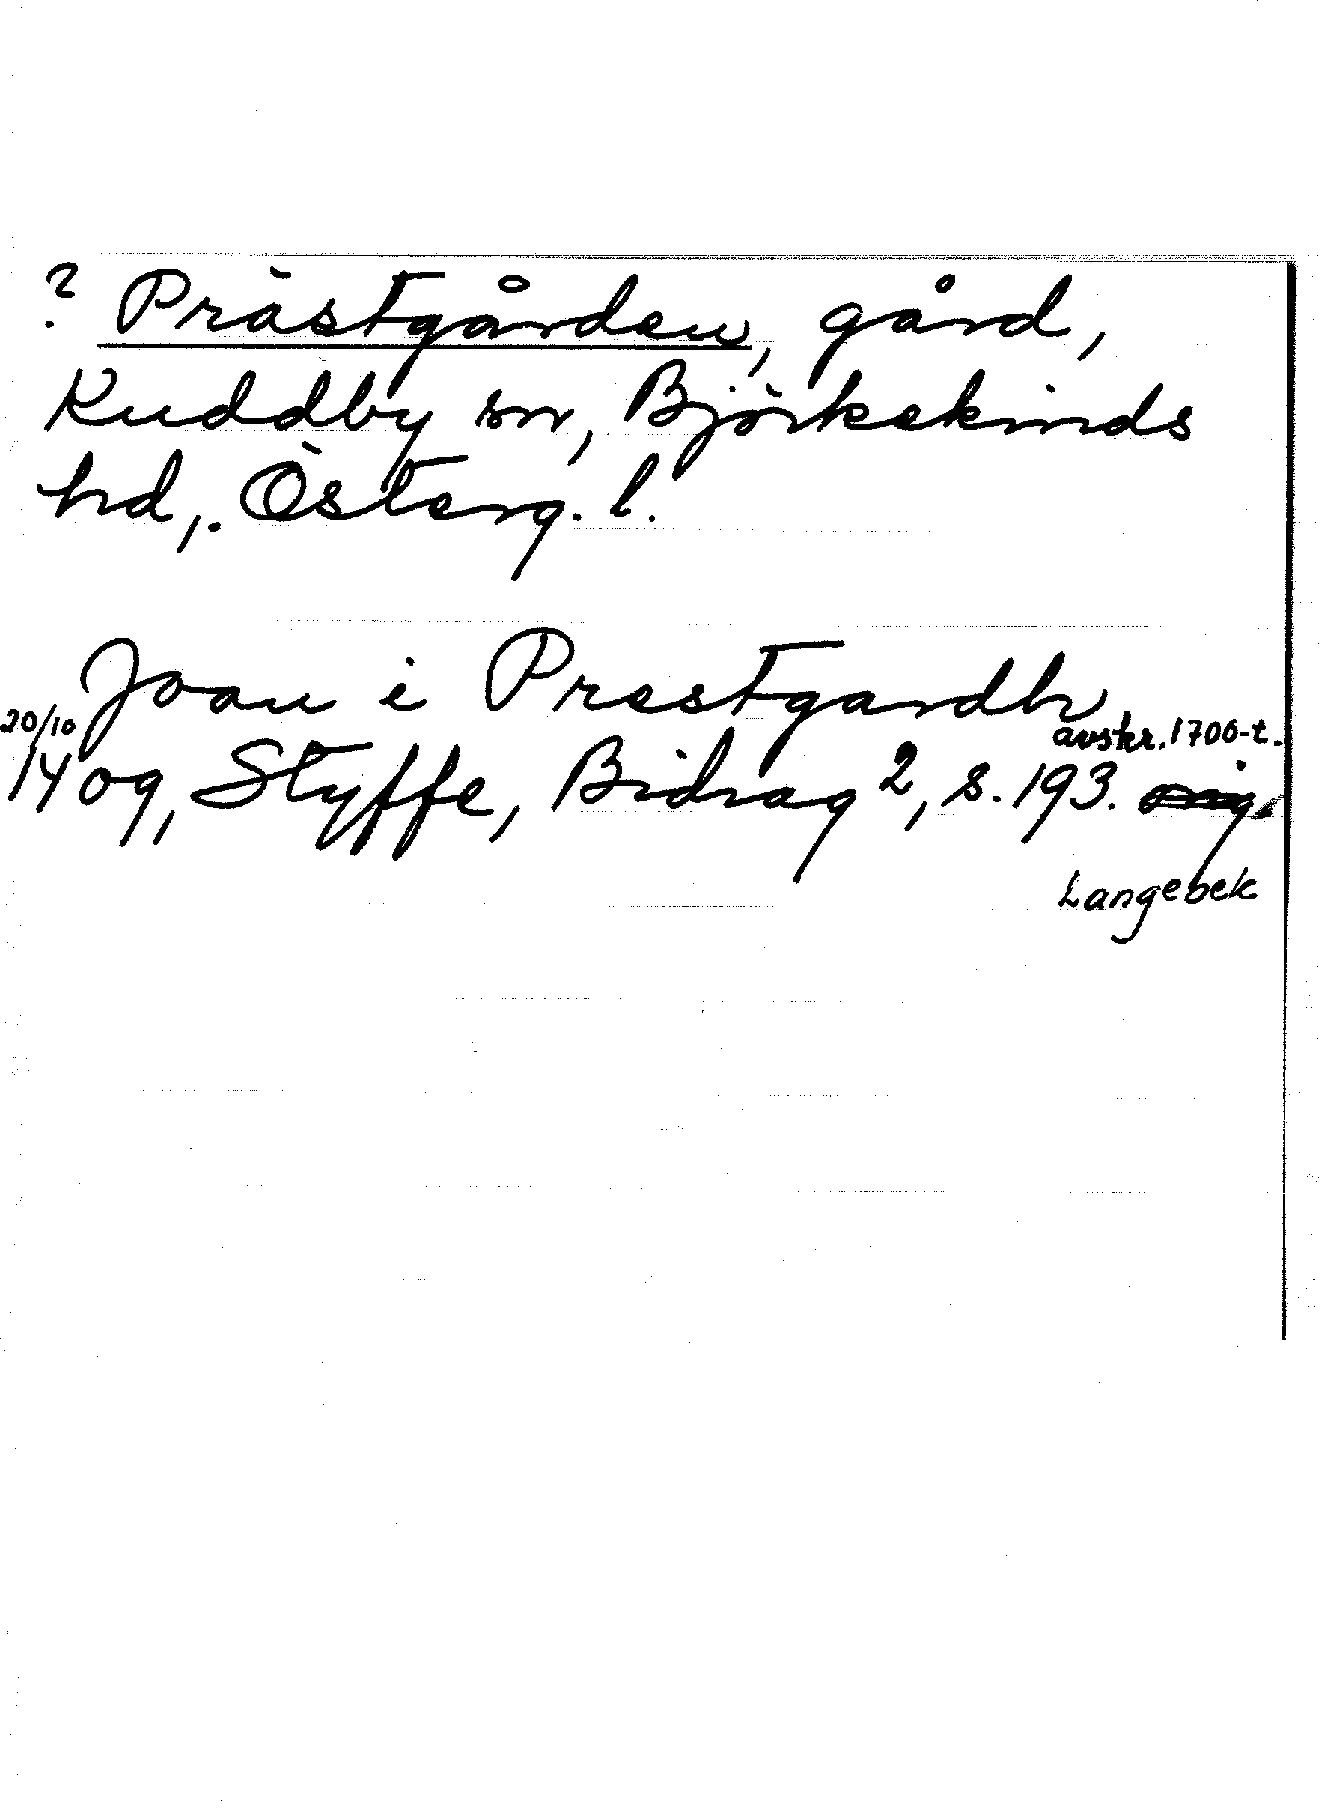 ? Prästgården, gård,
Kuddby sn, Björkekinds
hd, Österg. l.
Joan i Prestgardh,
20/10 avskr. 1700-t.
1409, Styffe, Bidrag 2, s. 193. orig.
Langebek